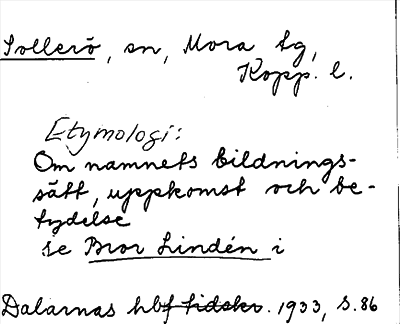 Sollerö, sn, Mora tg,
Kopp. l.
Etymologi:
Om namnets bildnings-
sätt, uppkomst och be-
tydelse
se Bror Lindén i
Dalarnas hbf tidskr. 1933, s. 86